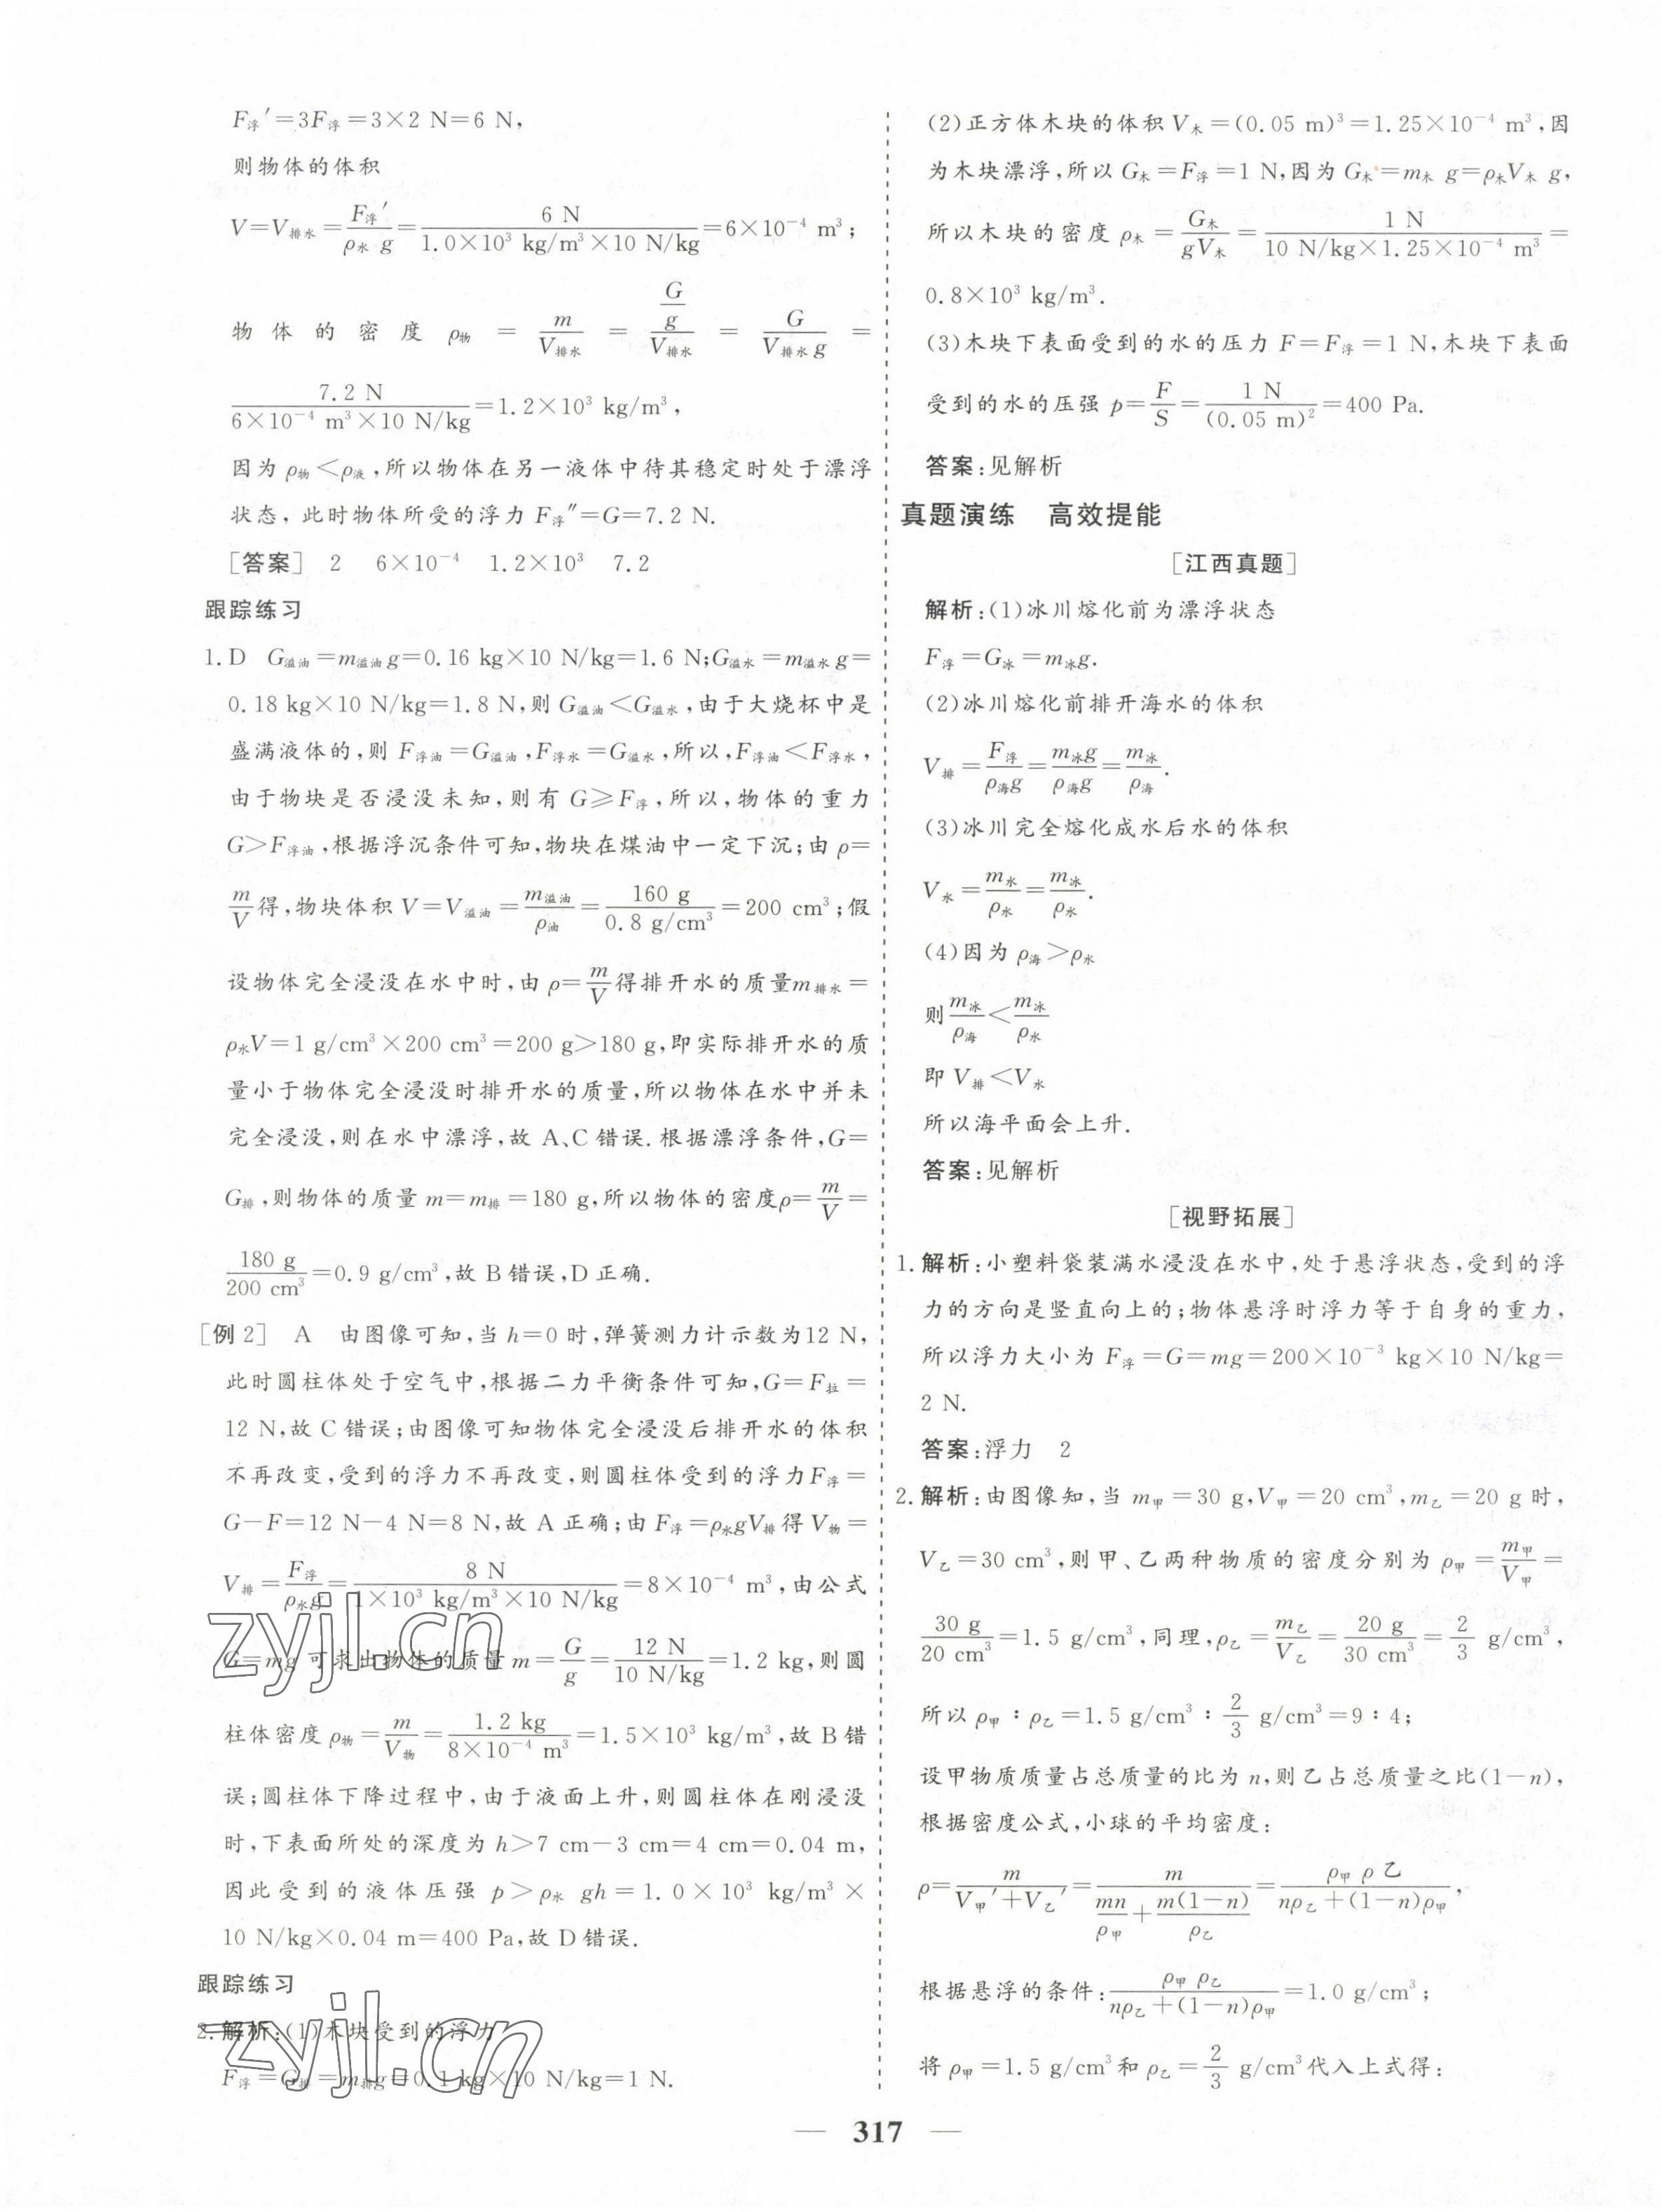 F浮′=3F浮=3×2 N=6 N,
则物体的体积
V=V排水=F浮′/(ρ水 g)=6 N/(1.0×10³ kg/m³×10 N/kg)=6×10⁻⁴ m³;
物体的密度 ρ物=m/V排水=(G/g)/V排水=G/(V排水 g)=
7.2 N/(6×10⁻⁴ m³×10 N/kg)=1.2×10³ kg/m³,
因为 ρ物<ρ液,所以物体在另一液体中待其稳定时处于漂浮
状态,此时物体所受的浮力 F浮″=G=7.2 N.
[答案] 2 6×10⁻⁴ 1.2×10³ 7.2
跟踪练习
1. D G溢油=m溢油g=0.16 kg×10 N/kg=1.6 N;G溢水=m溢水g=
0.18 kg×10 N/kg=1.8 N,则 G溢油<G溢水,由于大烧杯中是
盛满液体的,则 F浮油=G溢油,F浮水=G溢水,所以,F浮油<F浮水,
由于物块是否浸没未知,则有 G≥F浮,所以,物体的重力
G>F浮油,根据浮沉条件可知,物块在煤油中一定下沉;由 ρ=
m/V得,物块体积 V=V溢油=m溢油/ρ油=160 g/(0.8 g/cm³)=200 cm³;假
设物体完全浸没在水中时,由 ρ=m/V得排开水的质量m排水=
ρ水V=1 g/cm³×200 cm³=200 g>180 g,即实际排开水的质
量小于物体完全浸没时排开水的质量,所以物体在水中并未
完全浸没,则在水中漂浮,故 A、C 错误.根据漂浮条件,G=
G排,则物体的质量 m=m排=180 g,所以物体的密度ρ=m/V=
180 g/200 cm³=0.9 g/cm³,故 B 错误,D 正确.
[例 2] A 由图像可知,当 h=0 时,弹簧测力计示数为12 N,
此时圆柱体处于空气中,根据二力平衡条件可知,G=F拉=
12 N,故 C 错误;由图像可知物体完全浸没后排开水的体积
不再改变,受到的浮力不再改变,则圆柱体受到的浮力F浮=
G-F=12 N-4 N=8 N,故 A 正确;由 F浮=ρ水gV排得 V物=
V排=F浮/(ρ水g)=8 N/(1×10³ kg/m³×10 N/kg)=8×10⁻⁴ m³,由公式
G=mg 可求出物体的质量 m=G/g=12 N/(10 N/kg)=1.2 kg,则圆
柱体密度 ρ物=m/V物=1.2 kg/(8×10⁻⁴ m³)=1.5×10³ kg/m³,故 B 错
误;圆柱体下降过程中,由于液面上升,则圆柱体在刚浸没
时,下表面所处的深度为 h>7 cm-3 cm=4 cm=0.04 m,
因此受到的液体压强 p>ρ水 gh=1.0×10³ kg/m³×
10 N/kg×0.04 m=400 Pa,故 D 错误.
跟踪练习
2. 解析:(1)木块受到的浮力
F浮=G排=m排g=0.1 kg×10 N/kg=1 N.
(2)正方体木块的体积 V木=(0.05 m)³=1.25×10⁻⁴ m³,因
为木块漂浮,所以 G木=F浮=1 N,因为 G木=m木 g=ρ木V木 g,
所以木块的密度 ρ木=G木/(gV木)=1 N/(10 N/kg×1.25×10⁻⁴ m³)=
0.8×10³ kg/m³.
(3)木块下表面受到的水的压力 F=F浮=1 N,木块下表面
受到的水的压强 p=F/S=1 N/(0.05 m)²=400 Pa.
答案:见解析
真题演练 高效提能
[江西真题]
解析:(1)冰川熔化前为漂浮状态
F浮=G冰=m冰g.
(2)冰川熔化前排开海水的体积
V排=F浮/(ρ海g)=m冰g/(ρ海g)=m冰/ρ海.
(3)冰川完全熔化成水后水的体积
V水=m水/ρ水=m冰/ρ水.
(4)因为 ρ海>ρ水
则m冰/ρ海<m冰/ρ水
即 V排<V水
所以海平面会上升.
答案:见解析
[视野拓展]
1. 解析:小塑料袋装满水浸没在水中,处于悬浮状态,受到的浮
力的方向是竖直向上的;物体悬浮时浮力等于自身的重力,
所以浮力大小为 F浮=G=mg=200×10⁻³ kg×10 N/kg=
2 N.
答案:浮力 2
2. 解析:由图像知,当 m甲=30 g,V甲=20 cm³,m乙=20 g 时,
V乙=30 cm³,则甲、乙两种物质的密度分别为 ρ甲=m甲/V甲=
30 g/20 cm³=1.5 g/cm³,同理,ρ乙=m乙/V乙=20 g/30 cm³=2/3 g/cm³,
所以 ρ甲∶ρ乙=1.5 g/cm³∶2/3 g/cm³=9∶4;
设甲物质质量占总质量的比为 n,则乙占总质量之比(1-n),
根据密度公式,小球的平均密度:
ρ=m/(V甲′+V乙′)=m/(mn/ρ甲+m(1-n)/ρ乙)=ρ甲ρ乙/(nρ乙+(1-n)ρ甲),
根据悬浮的条件:ρ甲ρ乙/(nρ乙+(1-n)ρ甲)=1.0 g/cm³;
将 ρ甲=1.5 g/cm³和 ρ乙=2/3 g/cm³代入上式得:
— 317 —
zyjl.cn
zyjl.cn